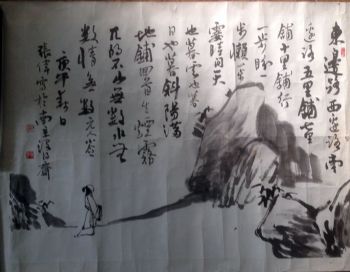 東邊路西邊路南
邊路五里鋪七里
鋪十里鋪行
一步盼一
步懶一步
霎時間天
也暮
日也暮雲也暮斜陽滿
地鋪回首生煙霧
兀的不山無數水無
數情無數元人
庚午春日
張偉寫於南